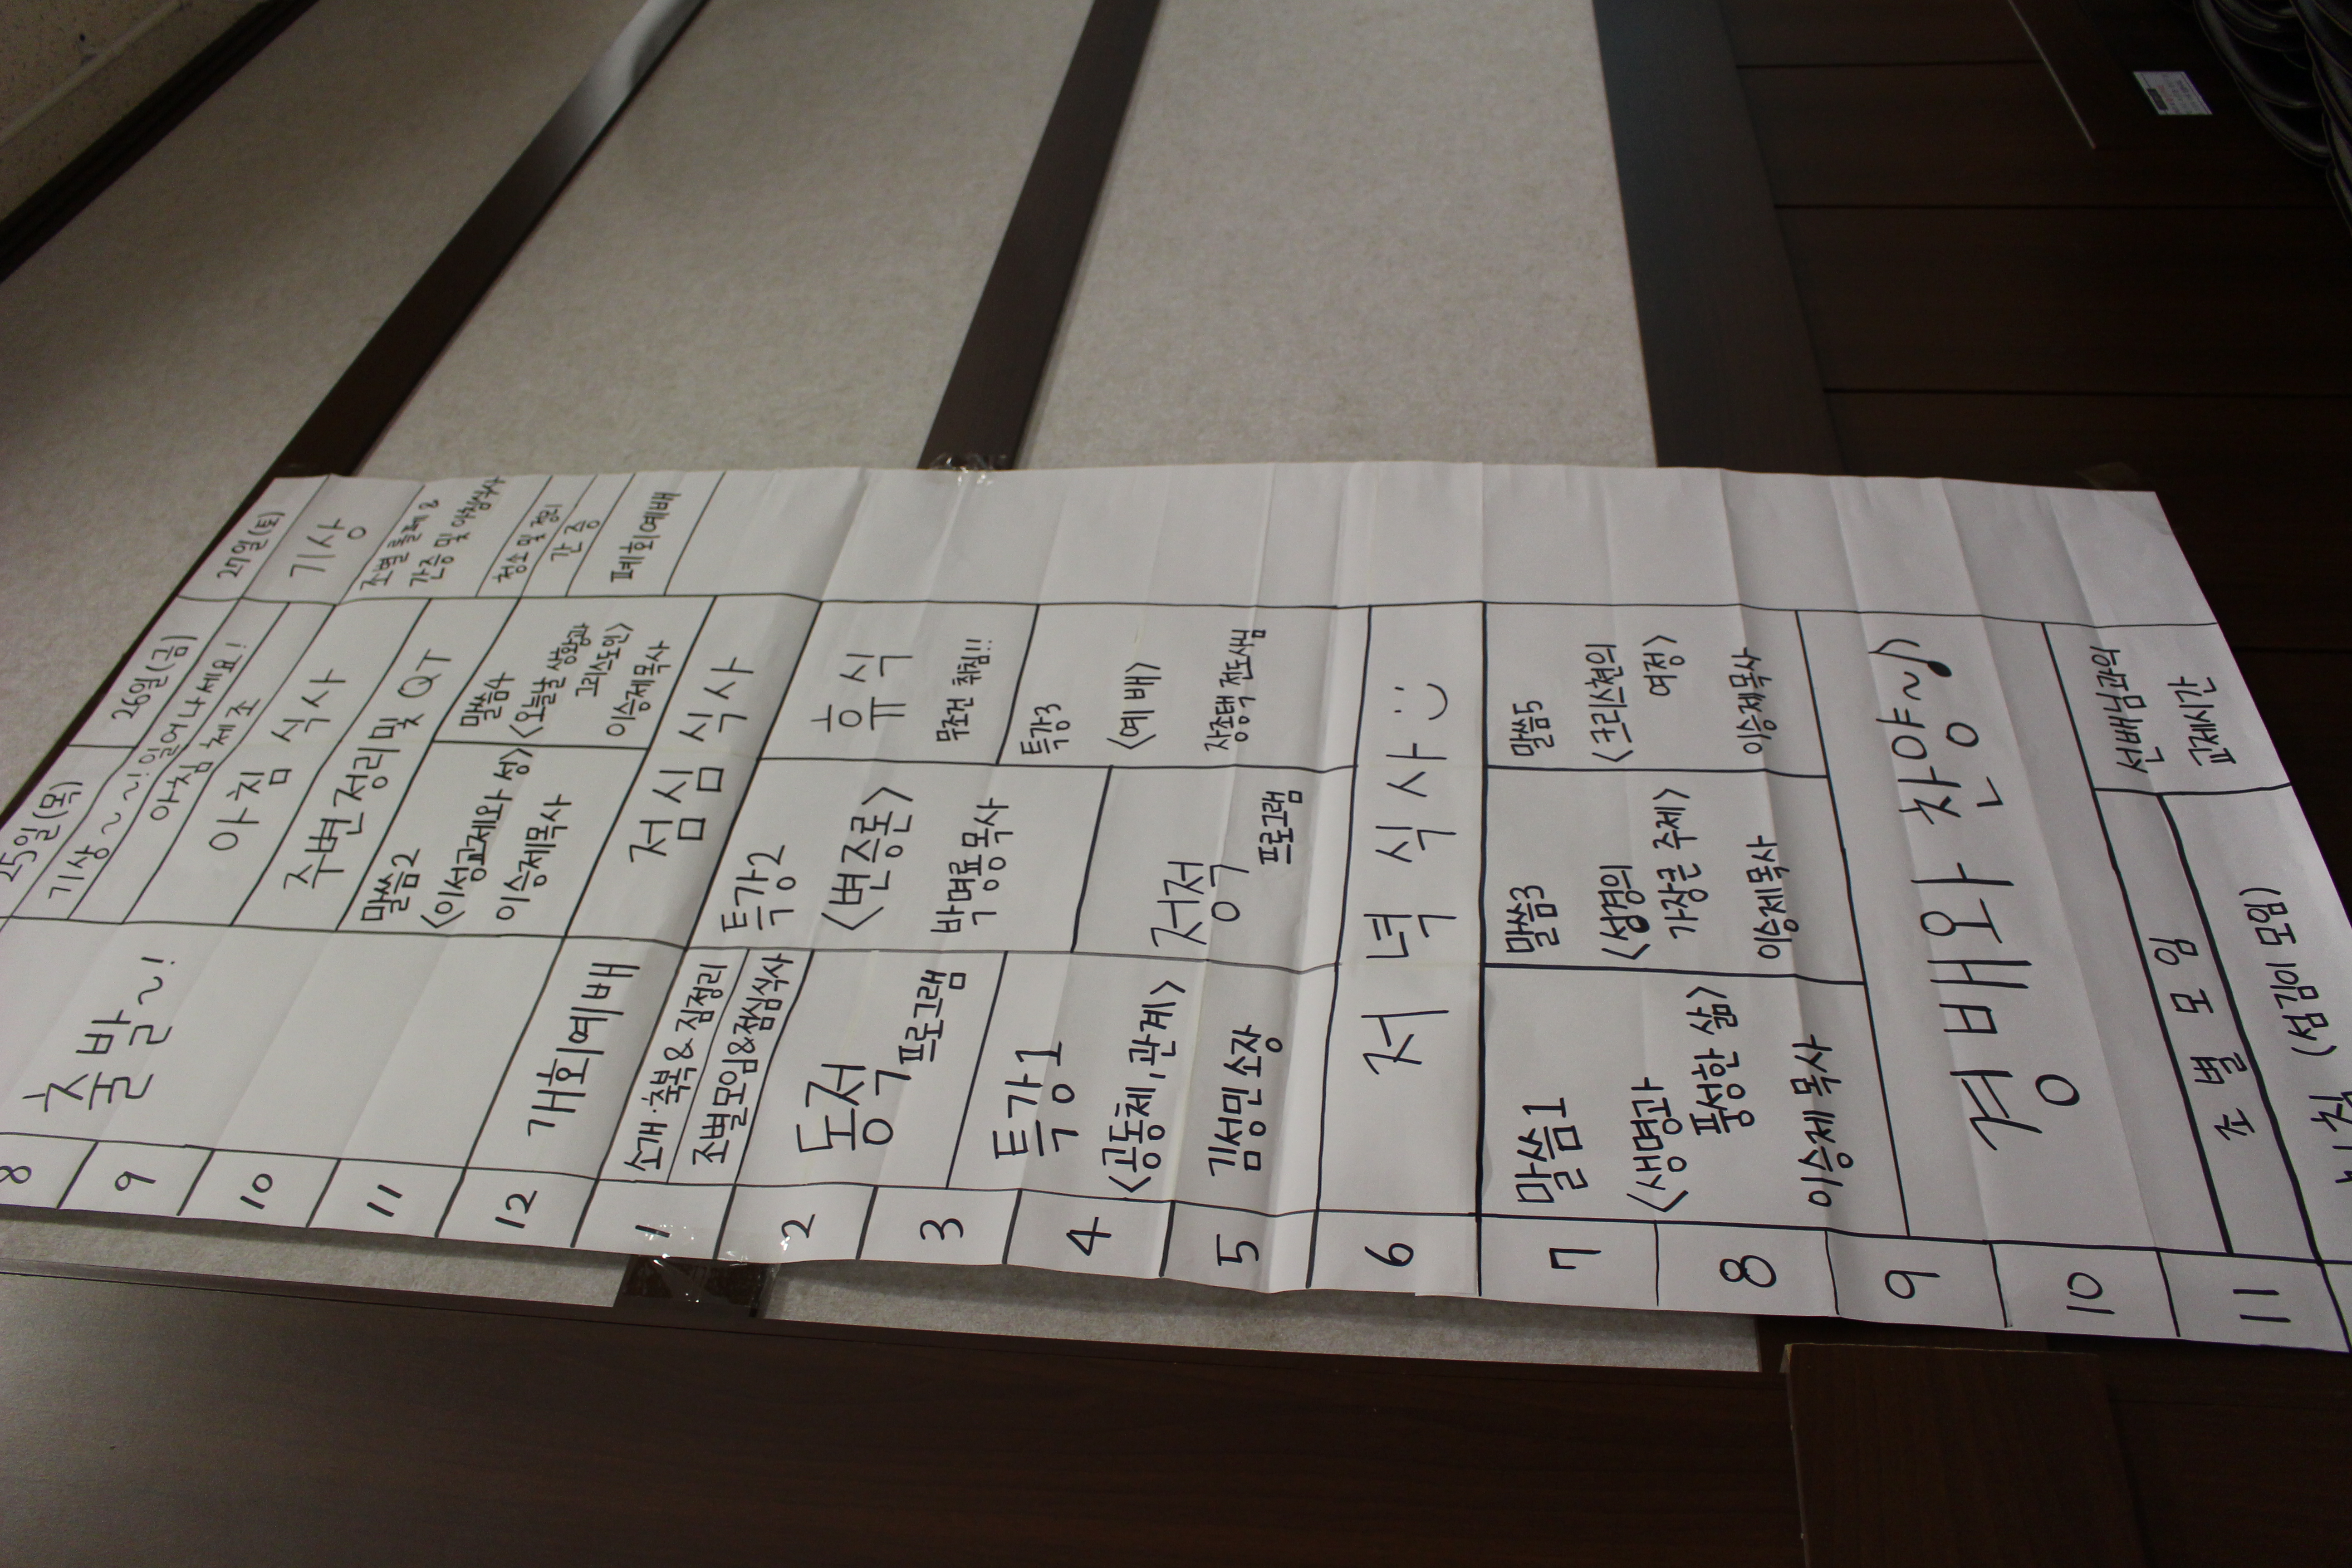 25일(목)
26일(금)
27일(토)
8
9
10
11
12
1
2
3
4
5
6
7
8
9
10
11
출발~!
개회예배
소개·축복&짐정리
조별모임&점심식사
동적
프로그램
특강1
<공동체,관계>
김성민 소장
말씀1
<생명과
풍성한 삶>
이승제 목사
기상~~! 일어나세요!
아침 체조
아침 식사
주변정리 및 QT
말씀2
<이성교제와 성>
이승제목사
점심 식사
특강2
<변증론>
박명룡목사
정적
프로그램
저녁식사
말씀3
<성경의
가장큰 주제>
이승제목사
경배와 찬양~♪
조별모임
(섬김이 모임)
말씀4
<오늘날 상황과
그리스도인>
이승제목사
휴식
무조건 취침!!
특강3
<예배>
전도사님
말씀5
<크리스천의
여정>
이승제목사
선배님과의
교제시간
기상
조별 &
간증 및 아침식사
청소 및 정리
간증
폐회예배